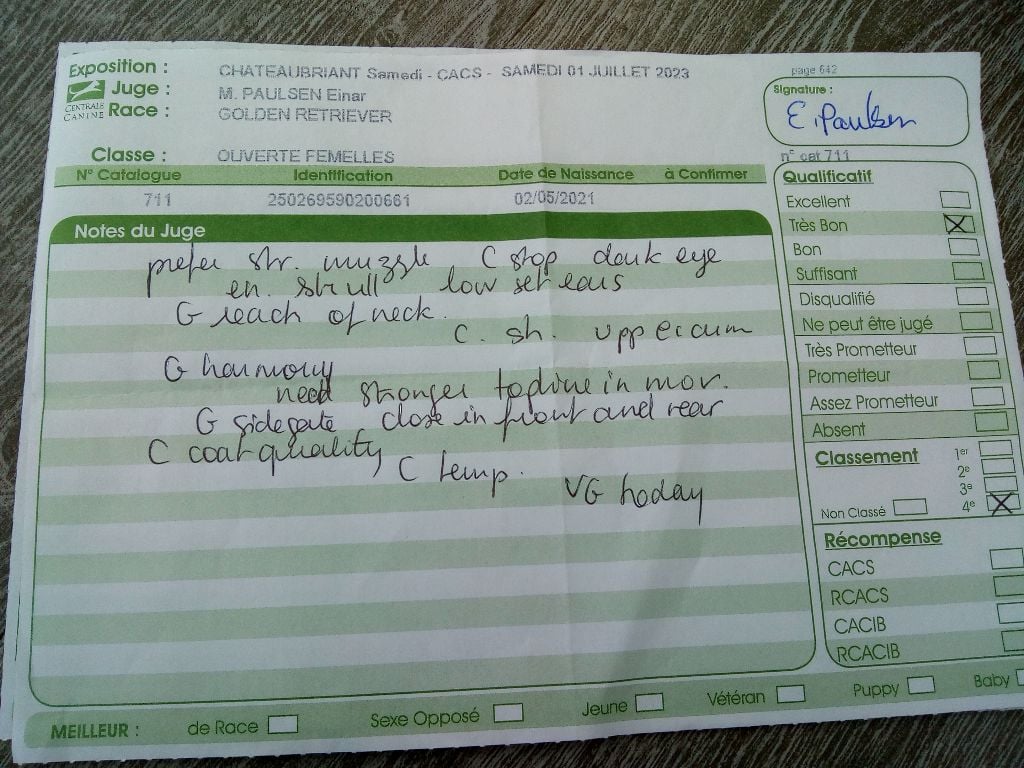 Exposition : CHATEAUBRIANT Samedi - CACS - SAMEDI 01 JUILLET 2023
page 642
Juge : M. PAULSEN Einar
CENTRALE CANINE
Race : GOLDEN RETRIEVER
Signature :
E. Paulsen
Classe : OUVERTE FEMELLES
n° cat 711
N° Catalogue Identification Date de Naissance à Confirmer
711 250269590200661 02/05/2021
Notes du Juge
prefer str. muzzle C stop dark eye
en. skull low set ears
G reach of neck.
C. sh. upper arm
G harmony
need stronger topline in mov.
G sidegate close in front and rear
C coat quality
C temp.
VG today
Qualificatif
Excellent
Très Bon X
Bon
Suffisant
Disqualifié
Ne peut être jugé
Très Prometteur
Prometteur
Assez Prometteur
Absent
Classement 1er
2e
3e
Non Classé 4e X
Récompense
CACS
RCACS
CACIB
RCACIB
MEILLEUR : de Race Sexe Opposé Jeune Vétéran Puppy Baby